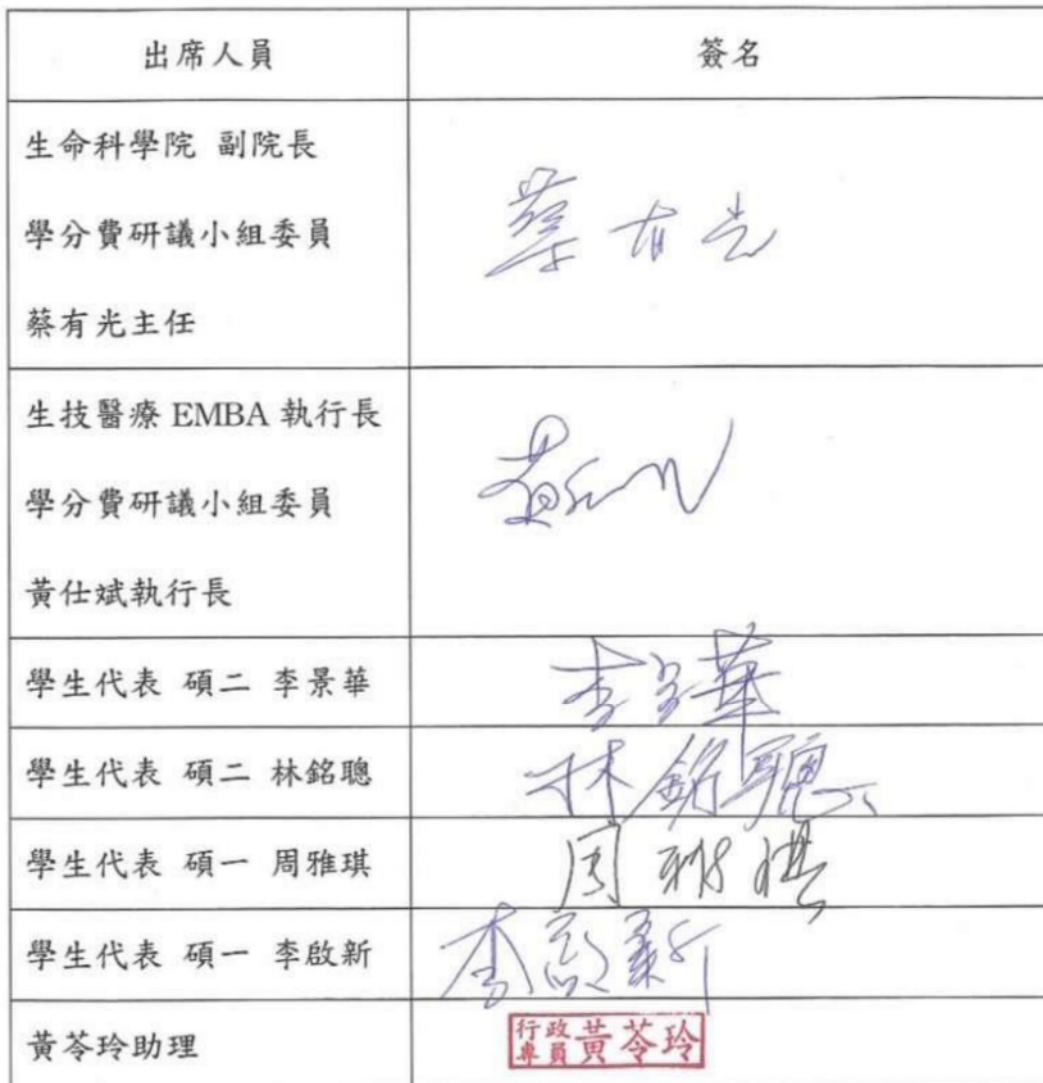 出席人員
簽名
生命科學院 副院長
學分費研議小組委員
蔡有光主任
蔡有光
生技醫療 EMBA 執行長
學分費研議小組委員
黃仕斌執行長
學生代表 碩二 李景華
李景華
學生代表 碩二 林銘聰
林銘聰
學生代表 碩一 周雅琪
周雅琪
學生代表 碩一 李啟新
李啟新
黃苓玲助理
行政專員 黃苓玲